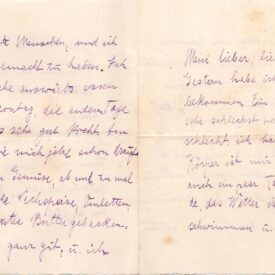 Menschen, und ich
gemacht zu haben. Ich
auswärts essen
die andern Tage
sehr gut kocht. Am
mich jetzt schon
Gemüse, ab und zu mal
Mehlspeise, Omletten
Butter gebacken,
ganz gut, u. ich
Mein lieber, lie
Gestern habe ich
bekommen. Ein
sehr schlecht
schlecht ich ha
Körper ist mir
auch ein paar Ta
de das Wetter
schwimmen u.